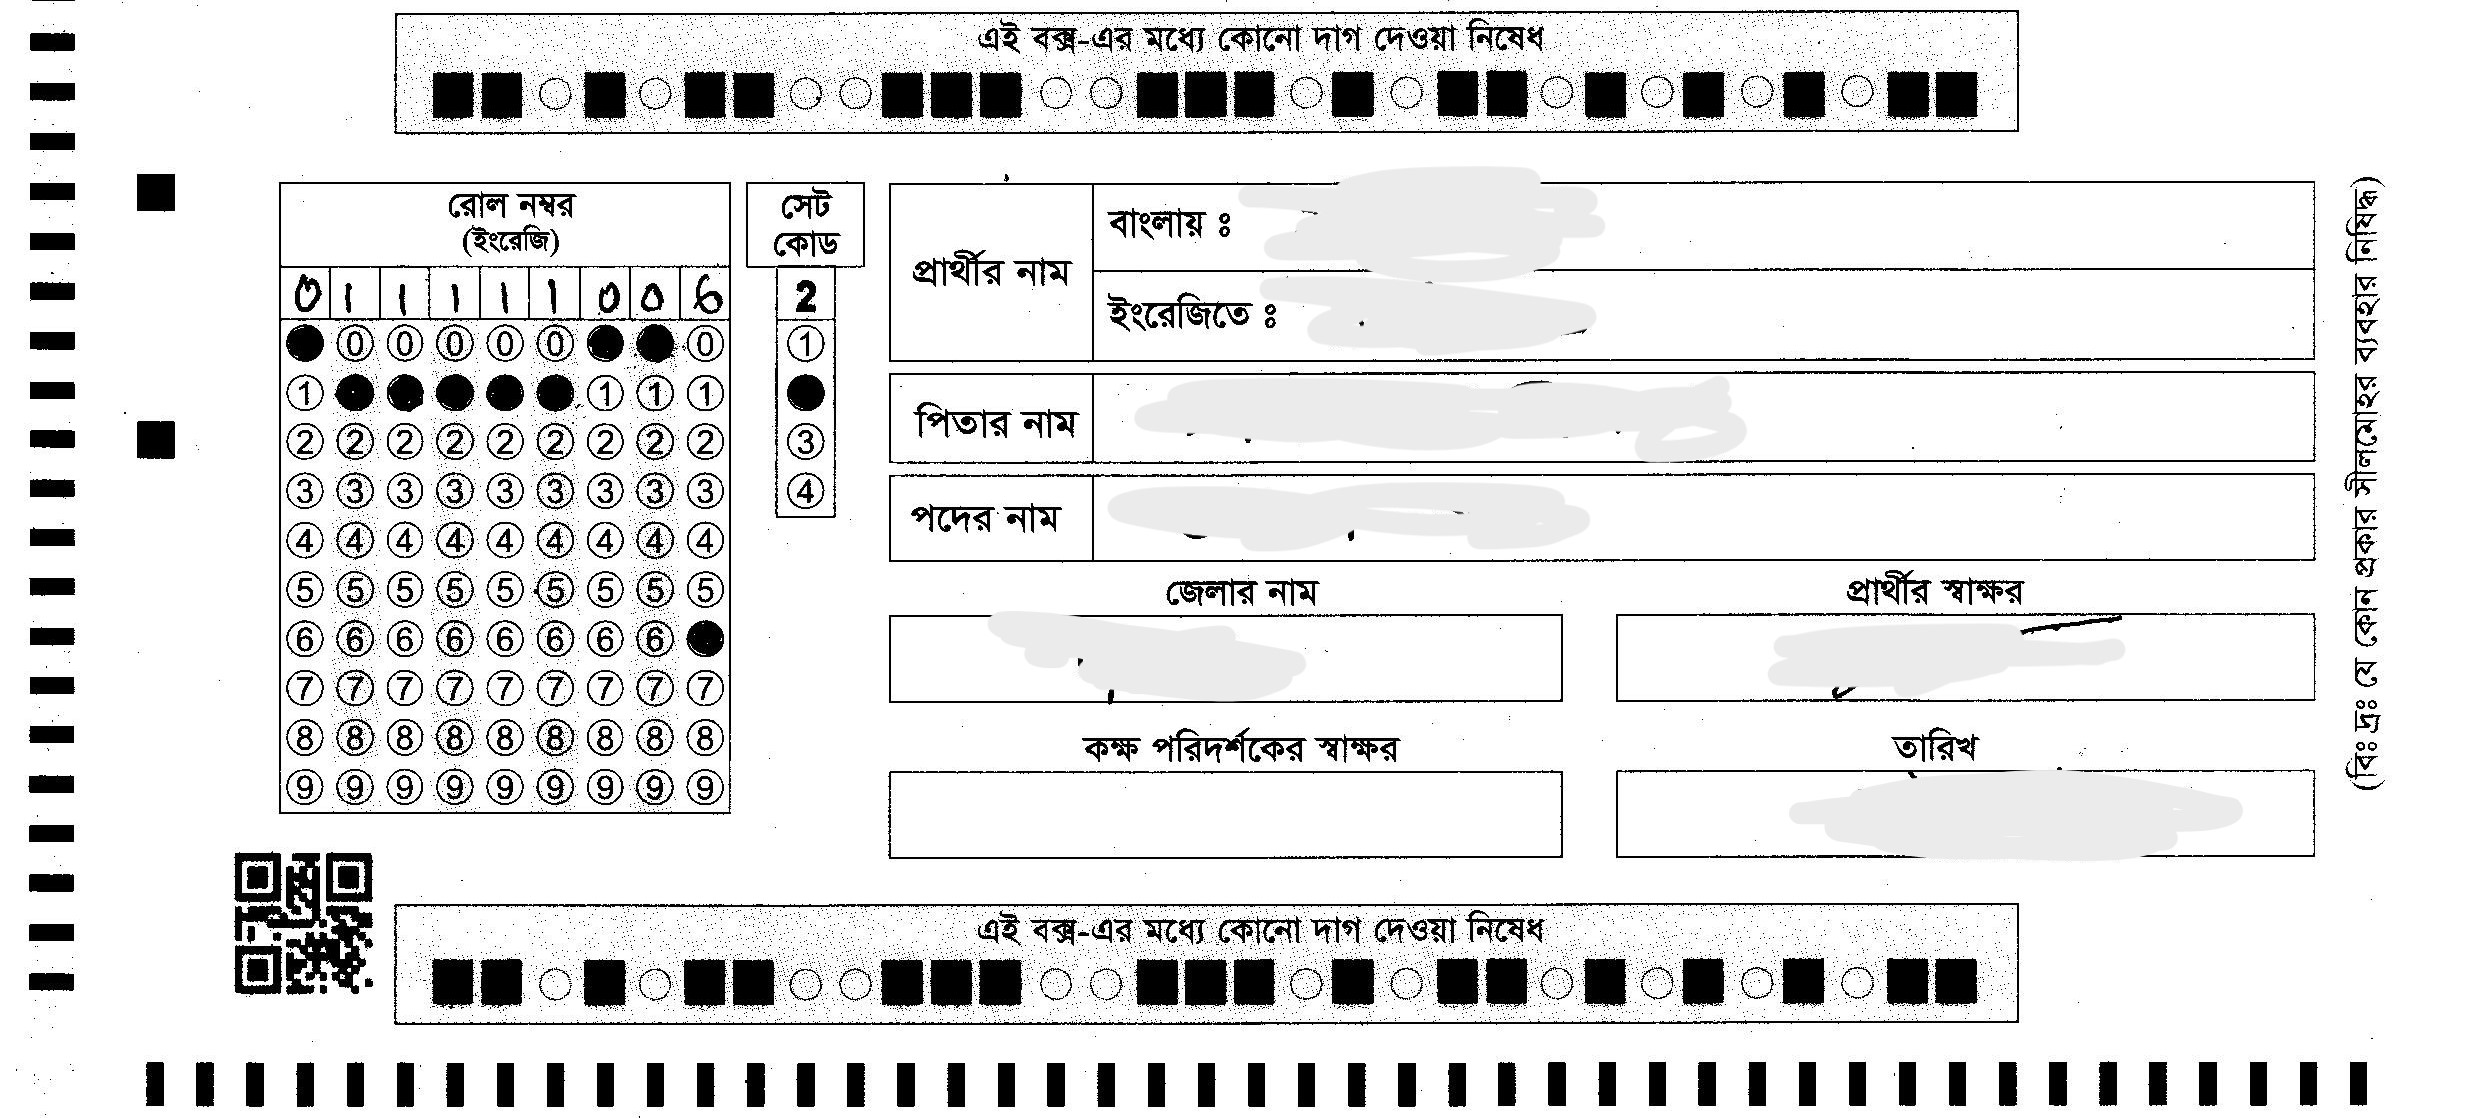 এই বক্স-এর মধ্যে কোনো দাগ দেওয়া নিষেধ
রোল নম্বর
(ইংরেজি)
0 1 1 1 1 1 0 0 6
0 0 0 0 0 0
1 1 1 1
2 2 2 2 2 2 2 2 2
3 3 3 3 3 3 3 3 3
4 4 4 4 4 4 4 4 4
5 5 5 5 5 5 5 5 5
6 6 6 6 6 6 6 6
7 7 7 7 7 7 7 7 7
8 8 8 8 8 8 8 8 8
9 9 9 9 9 9 9 9 9
সেট
কোড
2
1
3
4
প্রার্থীর নাম
বাংলায় ঃ
ইংরেজিতে ঃ
পিতার নাম
পদের নাম
জেলার নাম
প্রার্থীর স্বাক্ষর
কক্ষ পরিদর্শকের স্বাক্ষর
তারিখ
(বিঃ দ্রঃ যে কোন প্রকার সীলমোহর ব্যবহার নিষিদ্ধ)
এই বক্স-এর মধ্যে কোনো দাগ দেওয়া নিষেধ